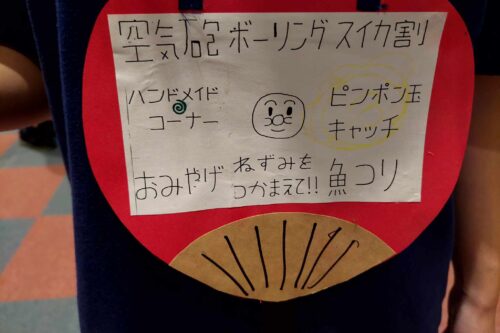 空気砲 ボーリング スイカ割
ハンドメイド
コーナー
ピンポン玉
キャッチ
おみやげ
ねずみを
つかまえて!!
魚コリ